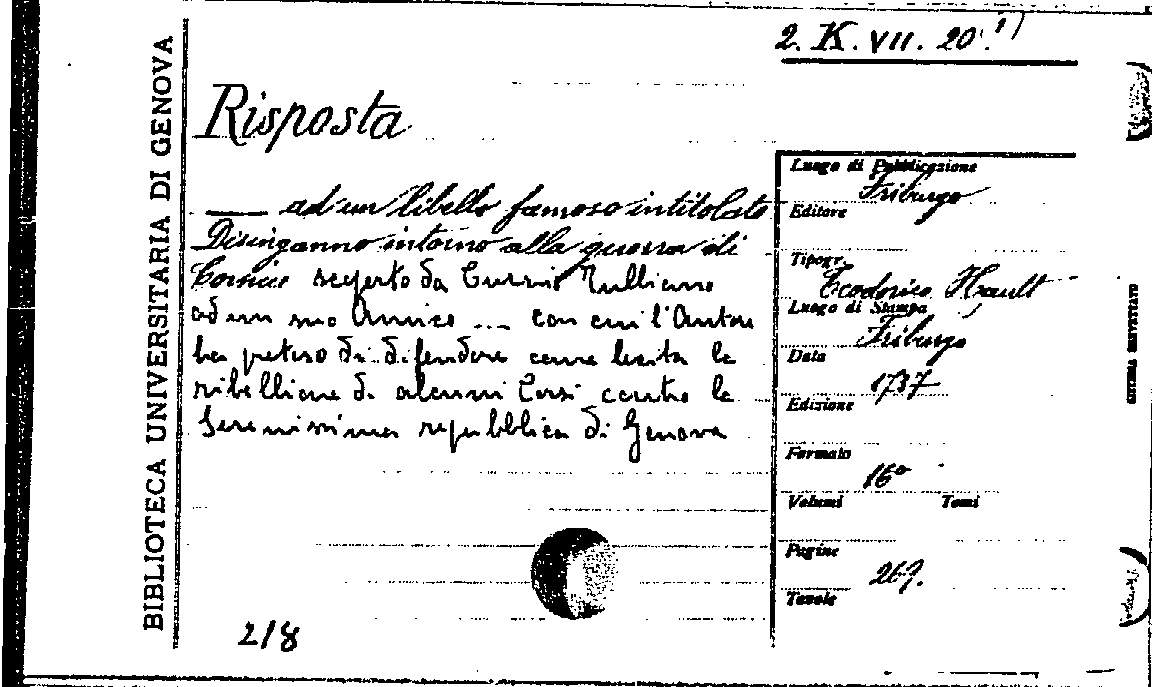 2. K. VII. 20.
BIBLIOTECA UNIVERSITARIA DI GENOVA
Risposta
ad un libello famoso intitolato
Disinganno intorno alla guerra di
Corsica scoperto da Curzio Tulliano
ad un suo Amico ... con cui l'Autore
ha preteso di difendere come lecita la
ribellione di alcuni Corsi contro la
Serenissima repubblica di Genova
Luogo di Pubblicazione
Friburgo
Editore
Tipogr.
Teodorico
Luogo di Stampa
Friburgo
Data
1737
Edizione
Formato
16º
Volumi Tomi
Pagine
269.
Tavole
2/8